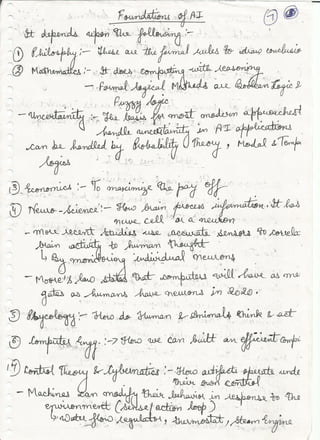 Foundations of AI
7
It depends upon the following :-
① Philosphy :- These are the formal rules to draw conclusio
② Mathematics :- It does computing with reasoning
- Formal logical Methods are Boolean Logic &
Fuzzy logic
- Uncertainity :- The basis for most modern approaches t
handle uncertainity in AI applications
can be handled by Probability Theory, Modal & Temp
logics
③ Economics :- To maximize the pay off
④ Neuro-Science :- How brain process information. It has
nerve cell or a neuron
- more recent studies use accurate sensors to correla
brain activity to human thought
↳ By monitoring individual neurons
- Moore's law states that computers will have as m
gates as humans have neurons in 2020.
⑤ Phycology :- How do Human & Animals think & act
⑥ Computer Engg. :-> How we can built an efficient Compu
⑦ Control Theory & Cybernatics :- How artifacts operate unde
their own control
- Machines can modify their behavior in response to the
environment (sense/action loop)
↳ Water flow regulator, thermostat, Steam Engine